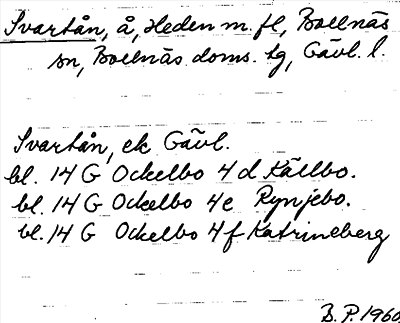 Svartån, å, Heden m. fl, Bollnäs
sn, Bollnäs doms. tg, Gävl. l.
Svartån, ek Gävl.
bl. 14 G Ockelbo 4 d Källbo.
bl. 14 G Ockelbo 4e Rynjebo.
bl. 14 G Ockelbo 4f Katrineberg
B. P. 1960.